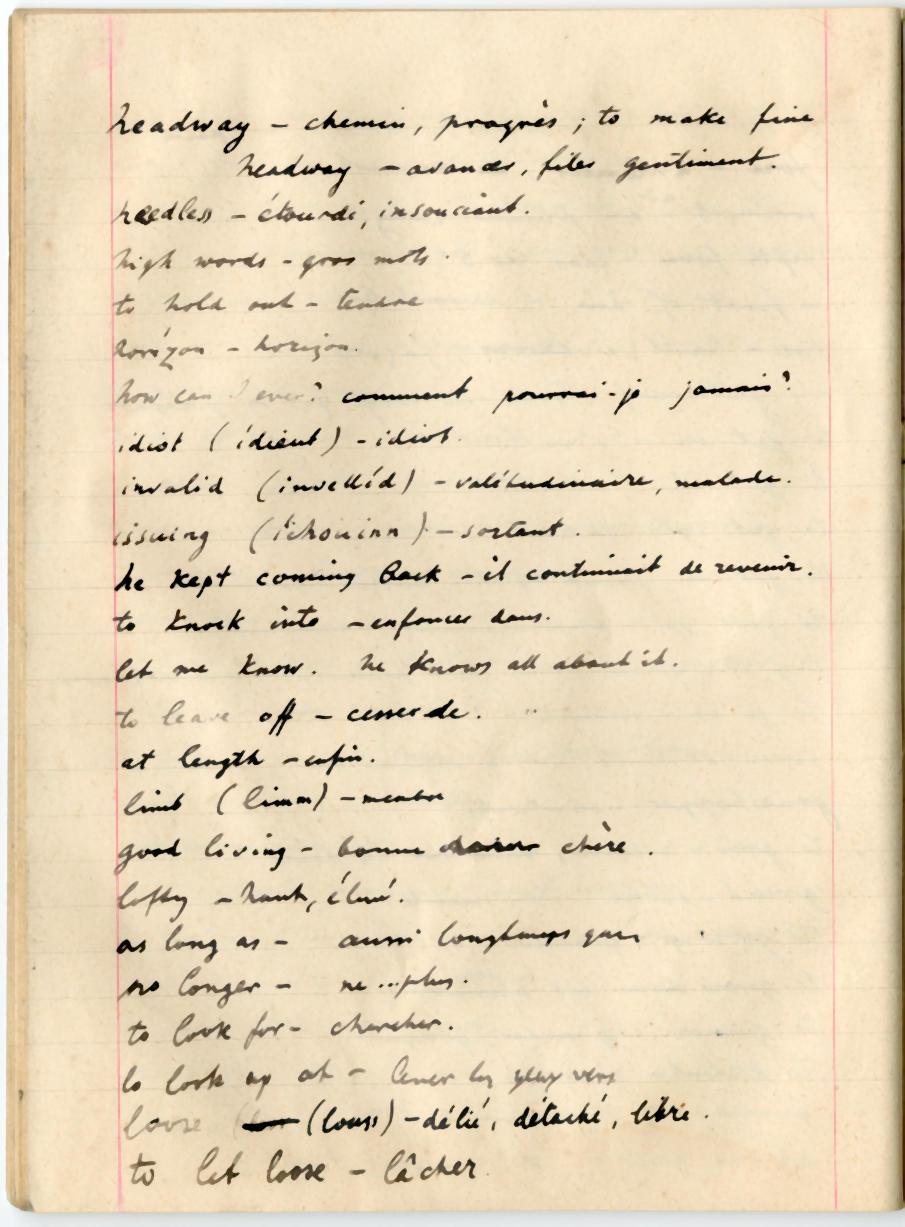 headway – chemin, progrès ; to make fine
headway – avancer, filer gentiment.
heedless – étourdi, insouciant.
high words – gros mots.
to hold out – tendre
horízon – horizon.
how can I ever? comment pourrai-je jamais?
idiot (ídieut) – idiot.
invalid (invellíd) – valétudinaire, malade.
issuing (íchouinn) – sortant.
he kept coming back – il continuait de revenir.
to knock into – enfoncer dans.
let me know. he knows all about it.
to leave off – cesser de.
at length – enfin.
limb (limm) – membre
good living – bonne chère.
lofty – haut, élevé.
as long as – aussi longtemps que
no longer – ne ... plus.
to look for – chercher.
to look up at – lever les yeux vers
loose (louss) – délié, détaché, libre.
to let loose – lâcher.